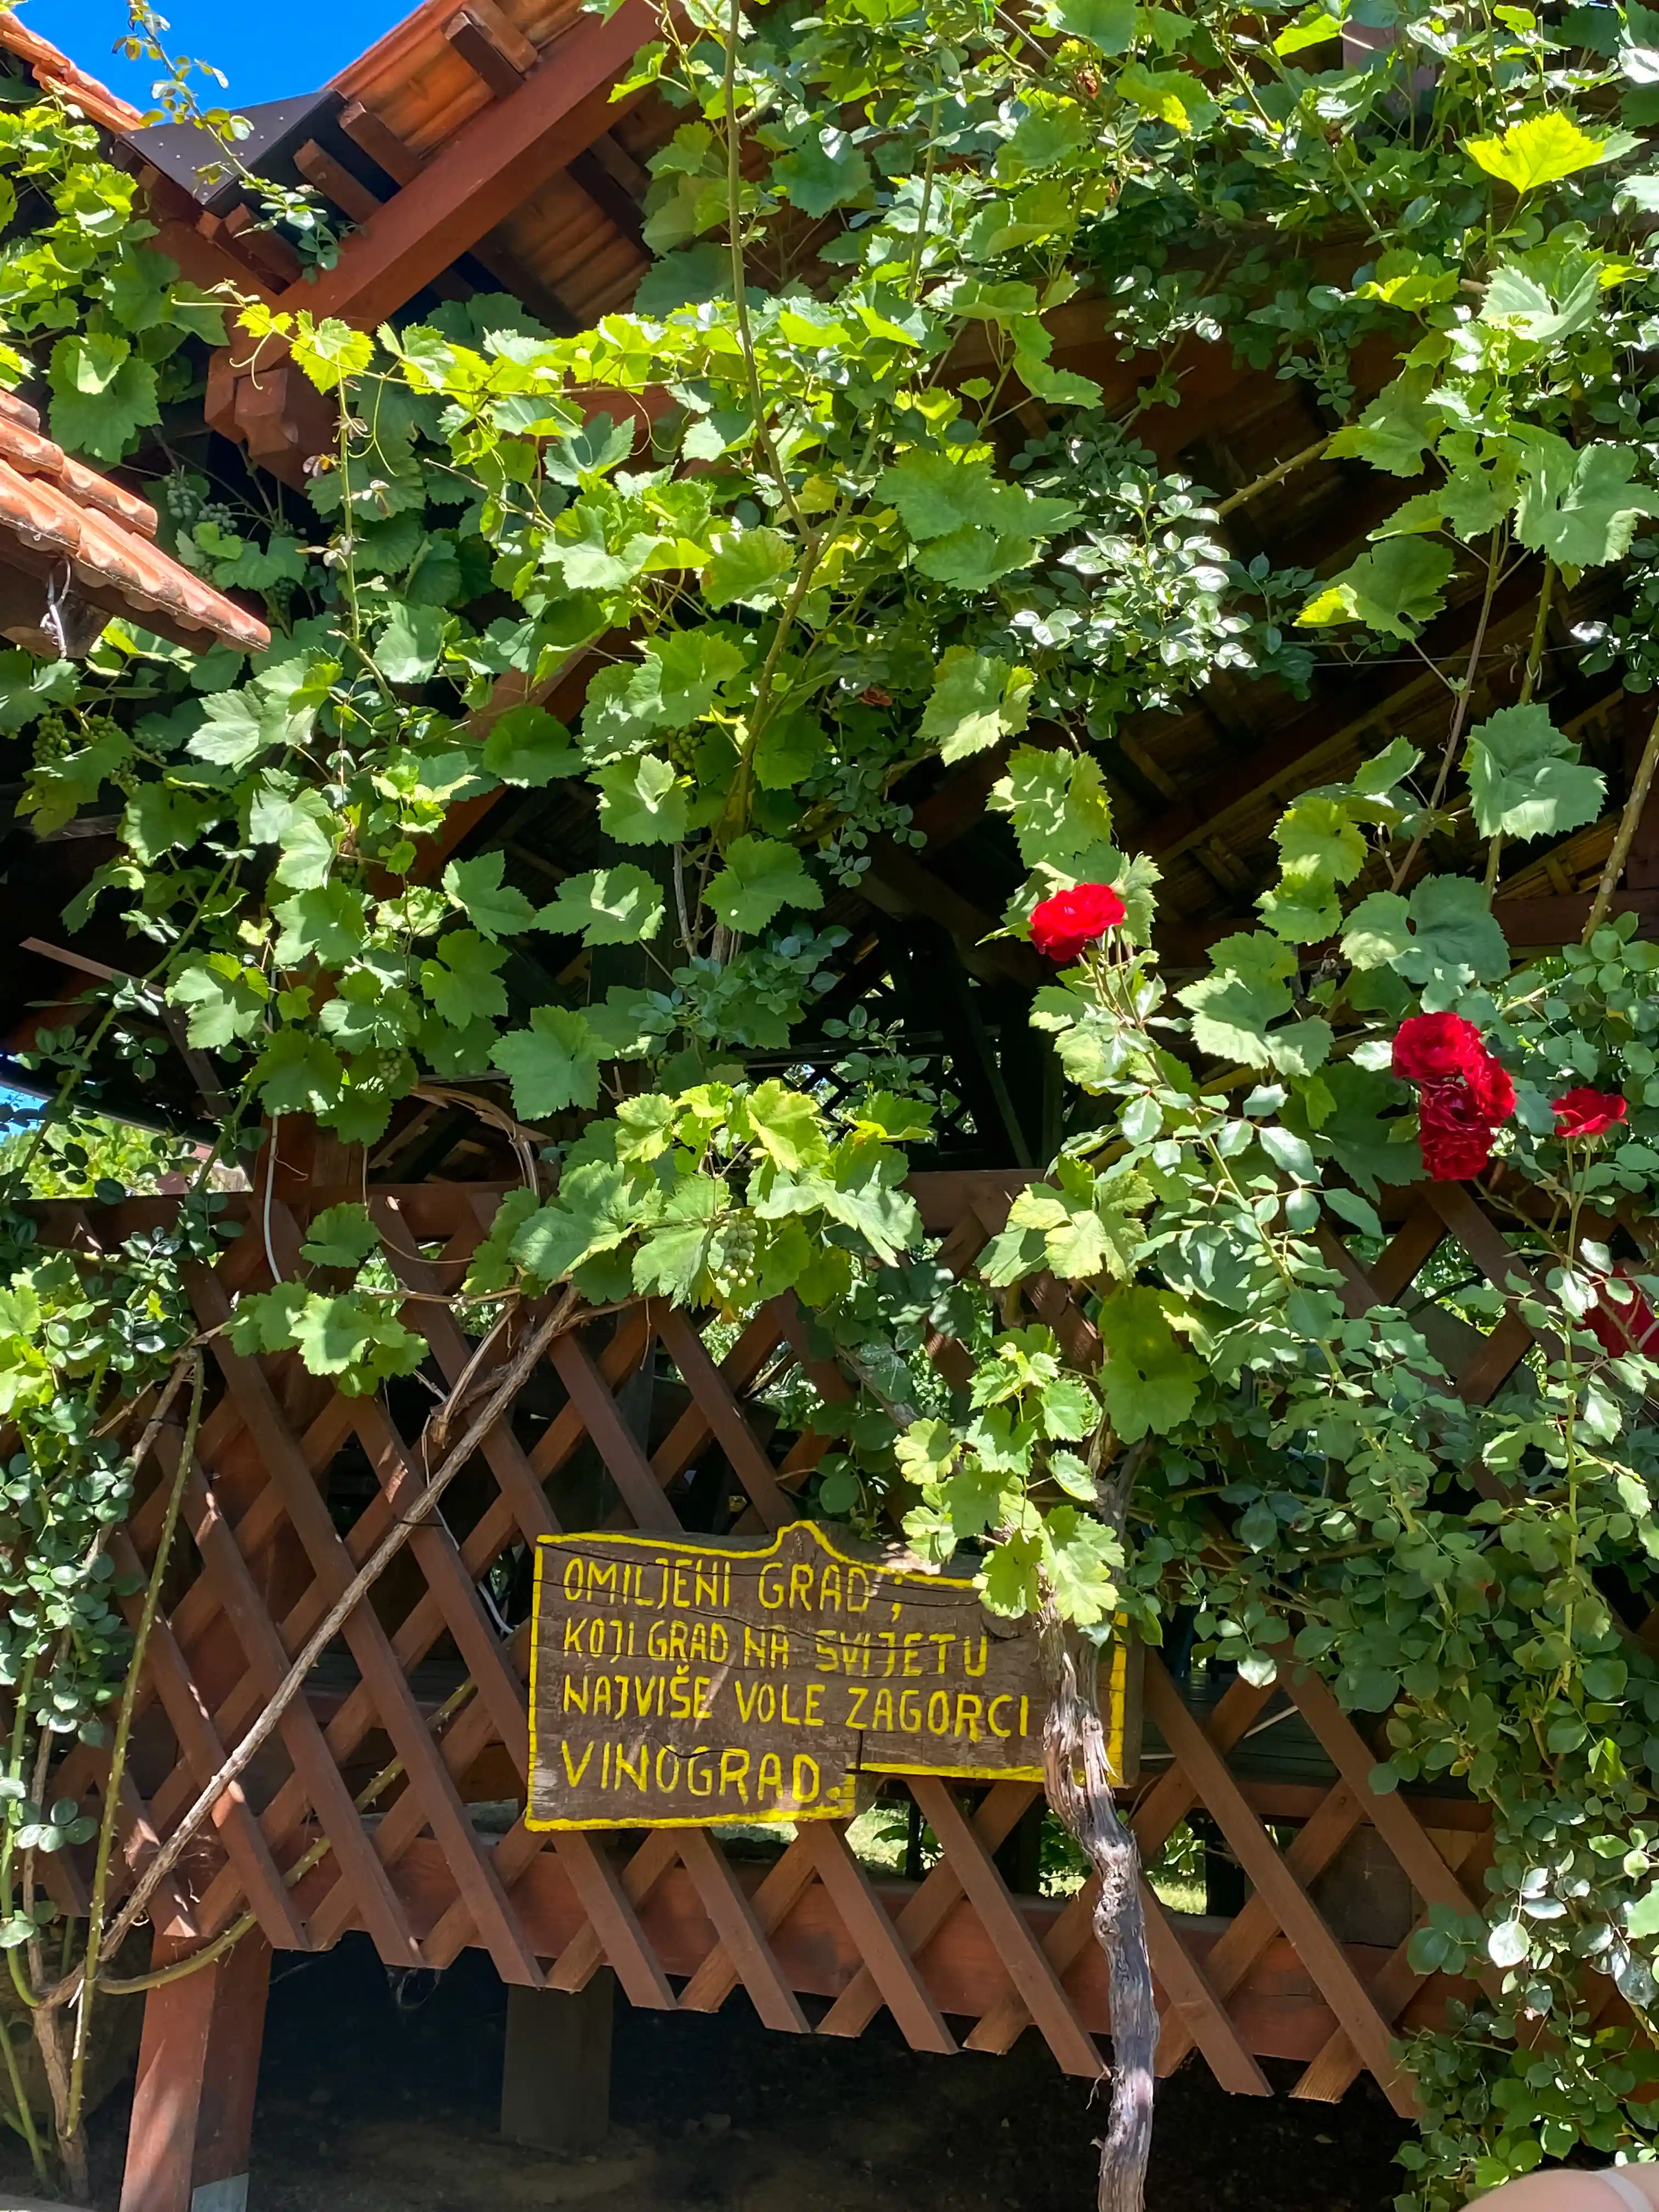 OMILJENI GRAD;
KOJI GRAD NA SVIJETU
NAJVIŠE VOLE ZAGORCI
VINOGRAD.